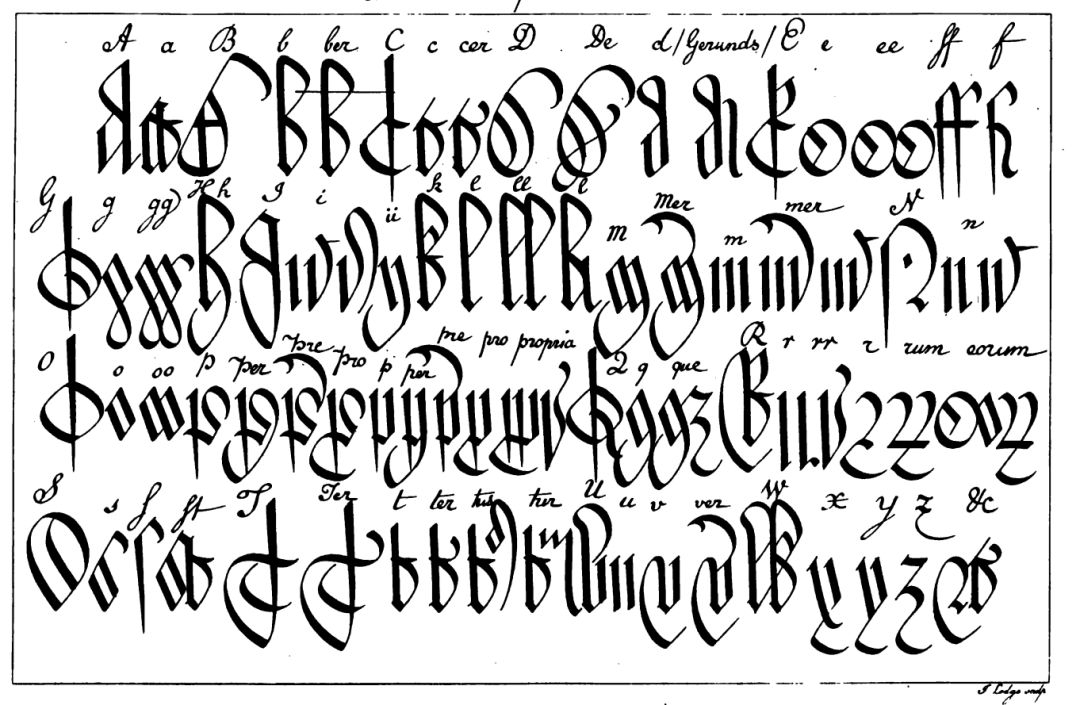 A a B b ber C c cer D De d /Gerunds/ E e ee ff f
G g gg H h I i ii k l ll M Mer m mer N n
O o oo p per pre pro p per pre pro propria Q q que R r rr r rum eorum
S s f ft T Ter t ter tur U u v ver W x y z &c
J Lodge sculp